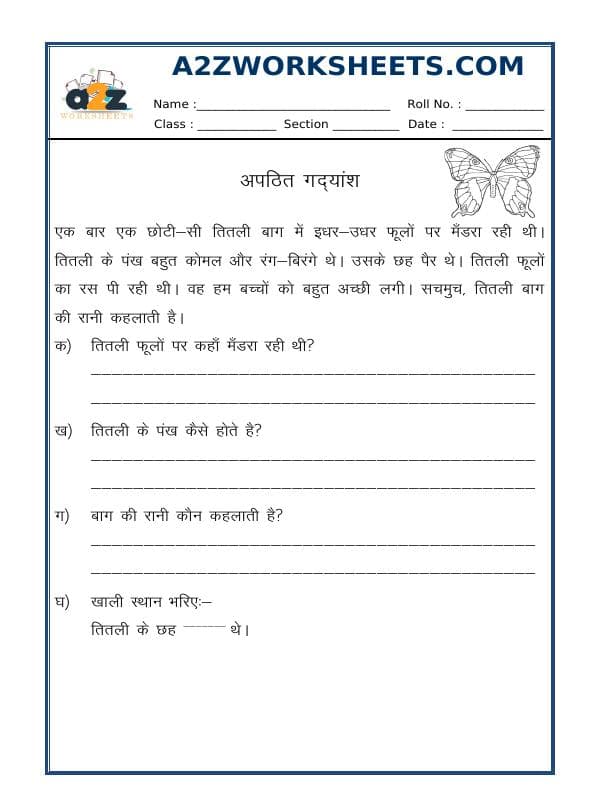 A2ZWORKSHEETS.COM
a2z
WORKSHEETS
Name :__________________________ Roll No. : ___________
Class : ___________ Section _________ Date : ____________
अपठित गद्‌यांश
एक बार एक छोटी–सी तितली बाग में इधर–उधर फूलों पर मँडरा रही थी।
तितली के पंख बहुत कोमल और रंग–बिरंगे थे। उसके छह पैर थे। तितली फूलों
का रस पी रही थी। वह हम बच्चों को बहुत अच्छी लगी। सचमुच, तितली बाग
की रानी कहलाती है।
क) तितली फूलों पर कहाँ मँडरा रही थी?
ख) तितली के पंख कैसे होते है?
ग) बाग की रानी कौन कहलाती है?
घ) खाली स्थान भरिए:–
तितली के छह ______ थे।